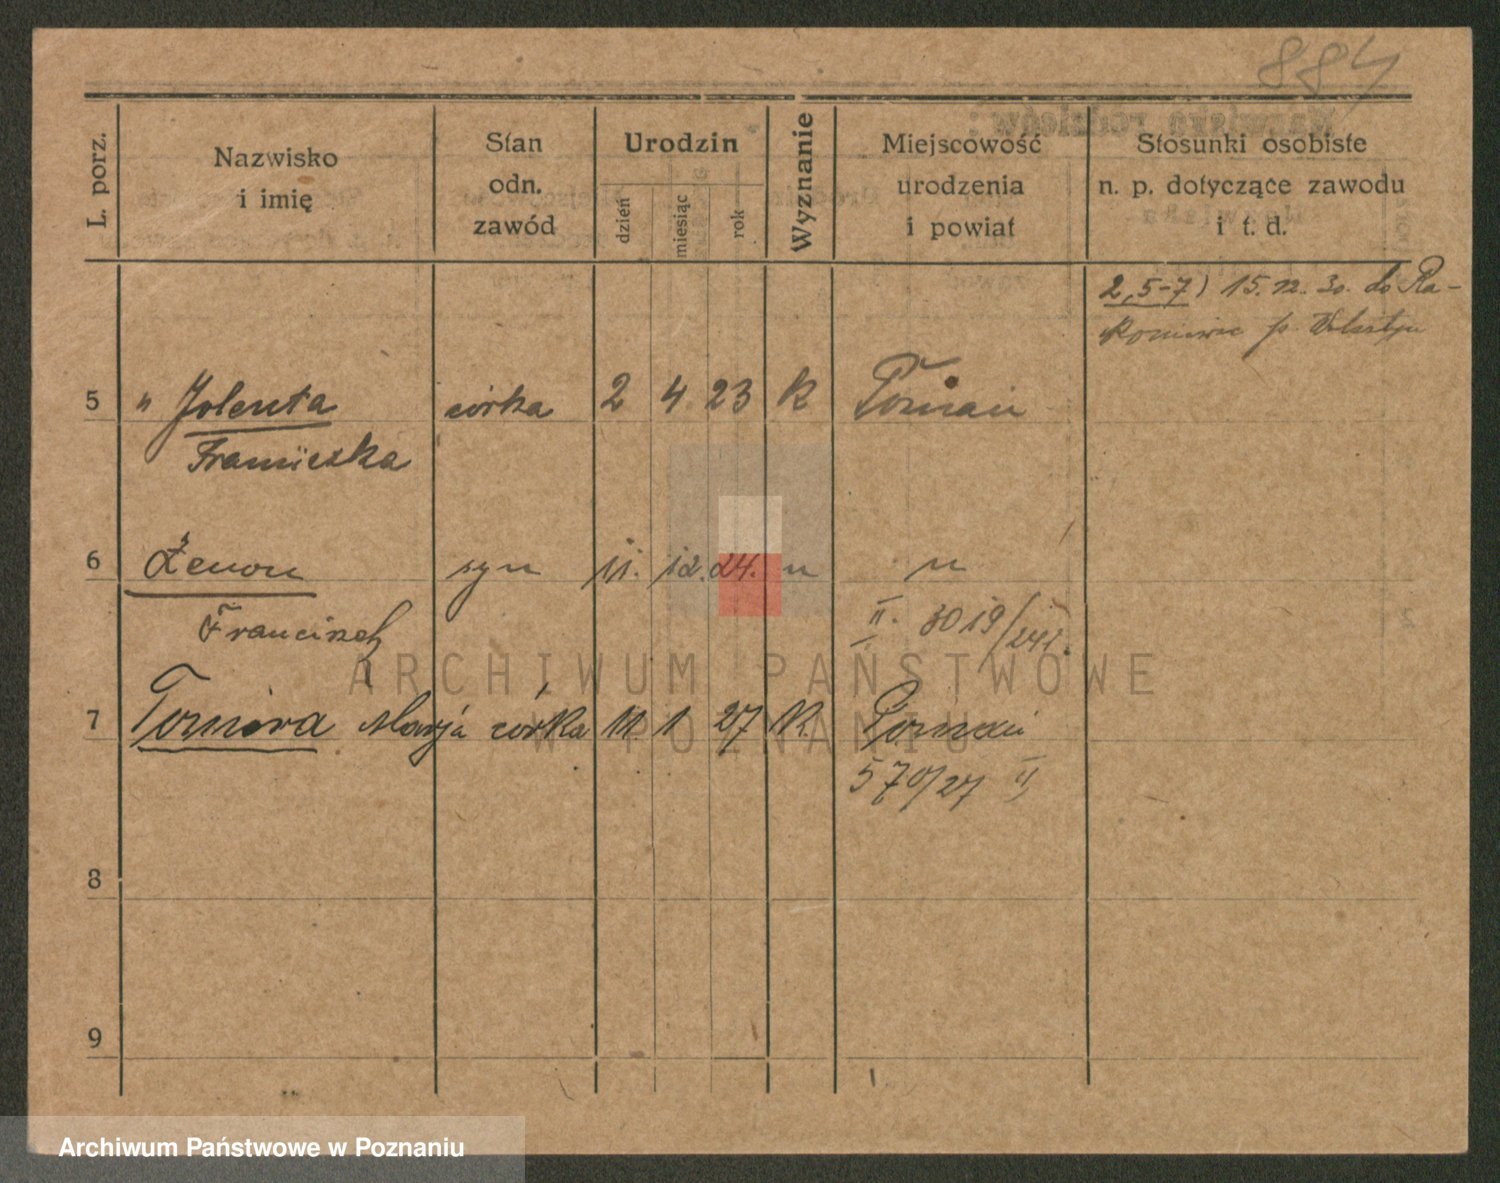 884
L. porz.
Nazwisko
i imię
Stan
odn.
zawód
Urodzin
dzień
miesiąc
rok
Wyznanie
Miejscowość
urodzenia
i powiat
Stosunki osobiste
n. p. dotyczące zawodu
i t. d.
2, 5-7) 15. 12. 30. do Ra-
koniewic p. Wolsztyn
5 " Jolenta córka 2 4 23 k Poznań
Franciszka
6 Zenon syn 11. 12. 24. " "
Franciszek II. 3019/24
7 Marja córka 11 1 27 k. Poznań
570/27 II
8
9
ARCHIWUM PAŃSTWOWE
W POZNANIU
Archiwum Państwowe w Poznaniu